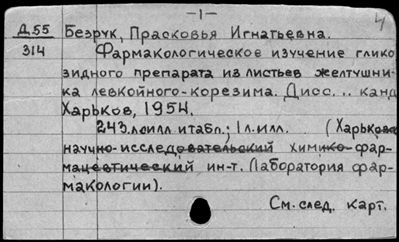 -1-
4
Д.55 Безрук, Прасковья Игнатьевна.
314 Фармакологическое изучение глико
зидного препарата из листьев желтушни-
ка левкойного-корезима. Дисс... канд
Харьков, 1954.
243.л.илл и табл.; 1 л.илл. (Харьков
научно-исследовательский химико-фар-
мацевтический ин-т. Лаборатория фар-
макологии).
См. след. карт.